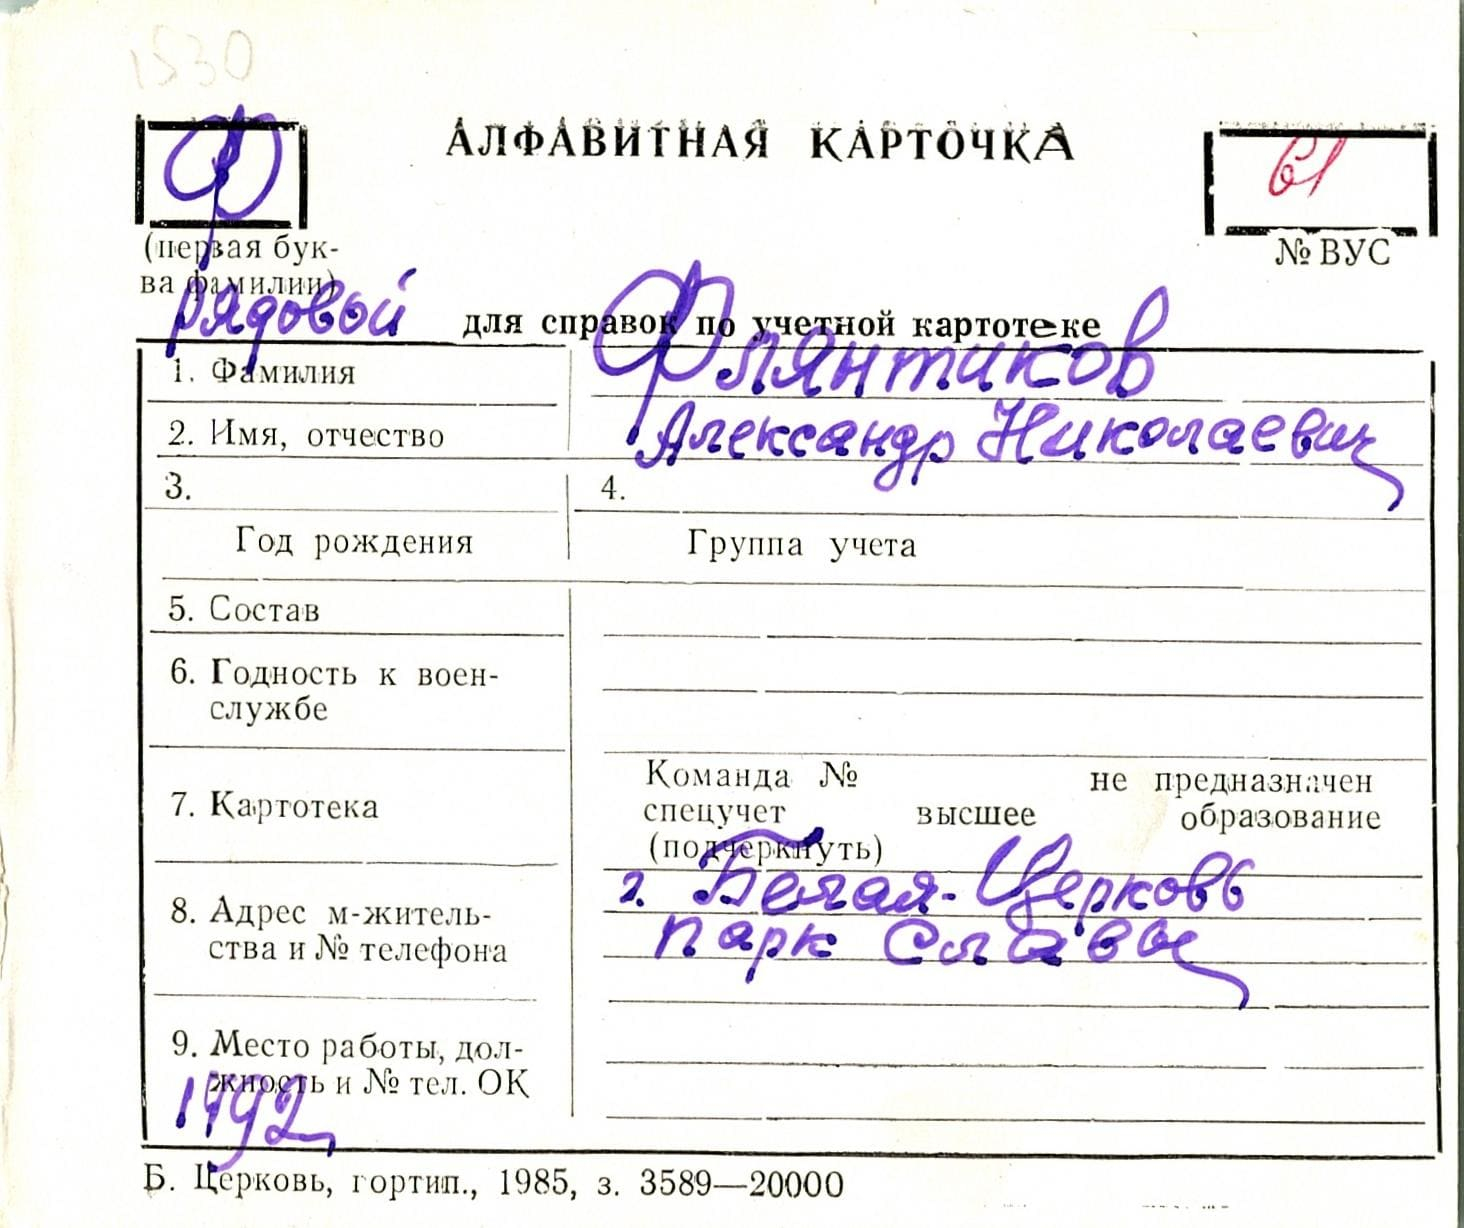 1530
Ф
АЛФАВИТНАЯ КАРТОЧКА
61
(первая бук-
ва фамилии)
№ ВУС
рядовый
для справок по учетной картотеке
1. Фамилия
Флянтиков
2. Имя, отчество
Александр Николаевич
3.
4.
Год рождения
Группа учета
5. Состав
6. Годность к воен-
службе
7. Картотека
Команда № не предназначен
спецучет высшее образование
(подчеркнуть)
8. Адрес м-житель-
ства и № телефона
г. Белая-Церковь
парк Славы
9. Место работы, дол-
жность и № тел. ОК
1992
Б. Церковь, гортип., 1985, з. 3589—20000